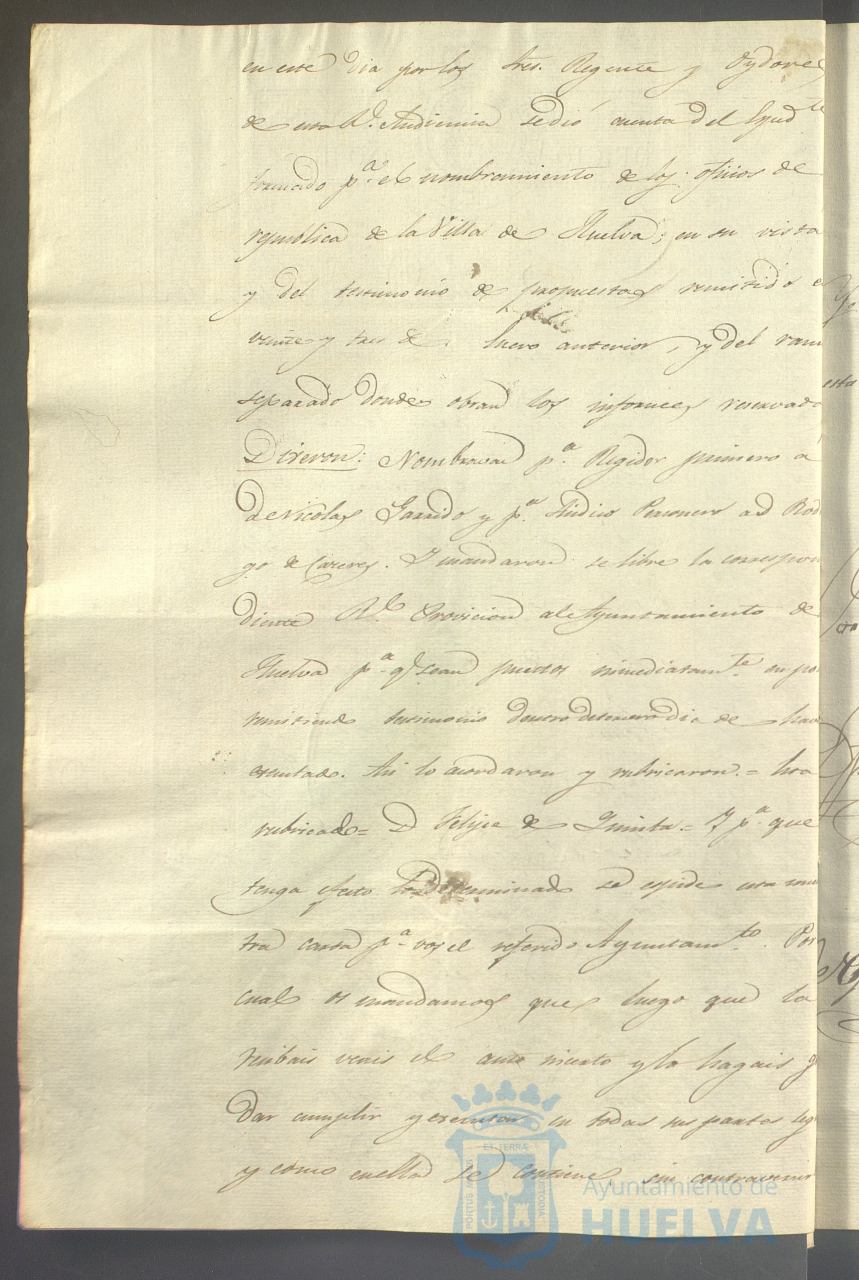 en este dia por los Sres. Regente y Oydores
de esta Rl. Audiencia se dió cuenta del Expdte
formado pa. el nombramiento de los oficios de
republica de la Villa de Huelva; en su vista
y del testimonio de propuestas remitido
veinte y tres de Enero anterior, y del ram
separado donde obran los informes reservado
Dixeron: Nombravan pa. Regidor primero a
Dn Nicolas Garrido y pa. Sindico Personero a D Rod
go de Cazeres. Y mandaron se libre la correspon
diente Rl. Provicion al Ayuntamiento de
Huelva pa. q sean puestos inmediatamte. en po
remitiendo testimonio dentro de tercero dia de hav
executado. Asi lo acordaron y rubricaron. = hai
rubricado = D Felipe de = Y pa. que
tenga efecto lo determinado se espide esta nues
tra carta pa. vos el referido Ayuntamto. Por
cual os mandamos que luego que la
recibais veais el auto inserto y lo hagais g
dar cumplir y executar en todas sus partes seg
y como en ella se contiene, sin contravenir
ET TERRÆ
PORTUS MARIS
CUSTODIA
Ayuntamiento de
HUELVA